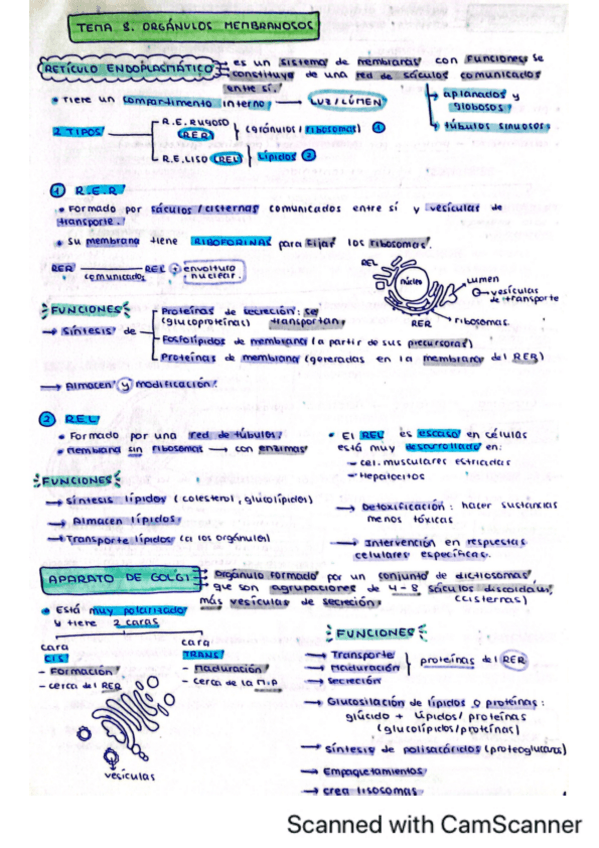 TEMA 8. ORGÁNULOS MEMBRANOSOS
RETÍCULO ENDOPLASMÁTICO → es un sistema de membranas con funciones se
constituye de una red de sáculos comunicados
entre sí.
→ aplanados y
globosos
→ túbulos sinuosos
• Tiene un compartimento interno → LUZ/LÚMEN
2 TIPOS
R.E. RUGOSO
(RER) (gránulos/ribosomas) ①
R.E. LISO (REL) Lípidos ②
① R.E.R
• Formado por sáculos/cisternas comunicados entre sí y vesículas de
transporte.
• Su membrana tiene RIBOFORINAS para fijar los ribosomas.
RER comunicados REL + envoltura
nuclear.
REL
núcleo
lumen
vesículas
de transporte
RER
ribosomas.
FUNCIONES
→ síntesis de
Proteínas de secreción: se
(glucoproteínas) transportan
Fosfolípidos de membrana (a partir de sus precursores)
Proteínas de membrana (generadas en la membrana del RER)
→ Almacen y modificación.
② REL
• Formado por una red de túbulos.
• Membrana sin ribosomas → con enzimas
• El REL es escaso en células
está muy desarrollado en:
- cel. musculares estriadas
- Hepatocitos
FUNCIONES
→ síntesis lípidos (colesterol, glucolípidos)
→ Almacen lípidos
→ Transporte lípidos (a los orgánulos)
→ Detoxificación: hacer sustancias
menos tóxicas.
→ Intervención en respuestas
celulares específicas.
APARATO DE GOLGI → orgánulo formado por un conjunto de dictiosomas,
→ que son agrupaciones de 4-8 sáculos discoidales,
más vesículas de secreción. (cisternas)
• Está muy polarizado
y tiene 2 caras
cara
CIS
- Formación
- cerca del RER
cara
TRANS
- Maduración
- cerca de la M.P
vesículas
FUNCIONES
→ Transporte
→ Maduración
→ secreción
proteínas del RER
→ Glucosilación de lípidos o proteínas:
glúcido + lípidos/proteínas
(glucolípidos/proteínas)
→ síntesis de polisacáridos (proteoglucanos)
→ Empaquetamientos
→ crea lisosomas
Scanned with CamScanner